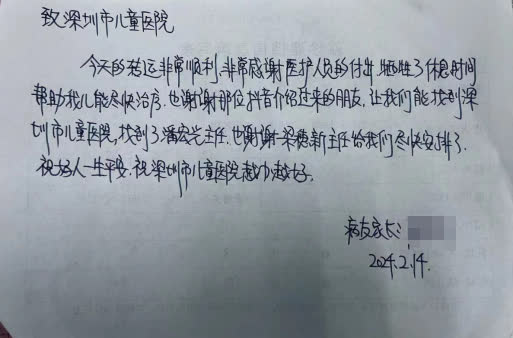 致深圳市儿童医院
今天的转运非常顺利,非常感谢医护人员的付出,牺牲了休息时间
帮助我儿能尽快治疗.也谢谢那位抖音介绍过来的朋友,让我们能找到深
圳市儿童医院,找到了潘宏光主任.也谢谢梁穗新主任给我们尽快安排了.
祝好人一生平安.祝深圳市儿童医院越办越好.
病友家长:
2024.2.14.